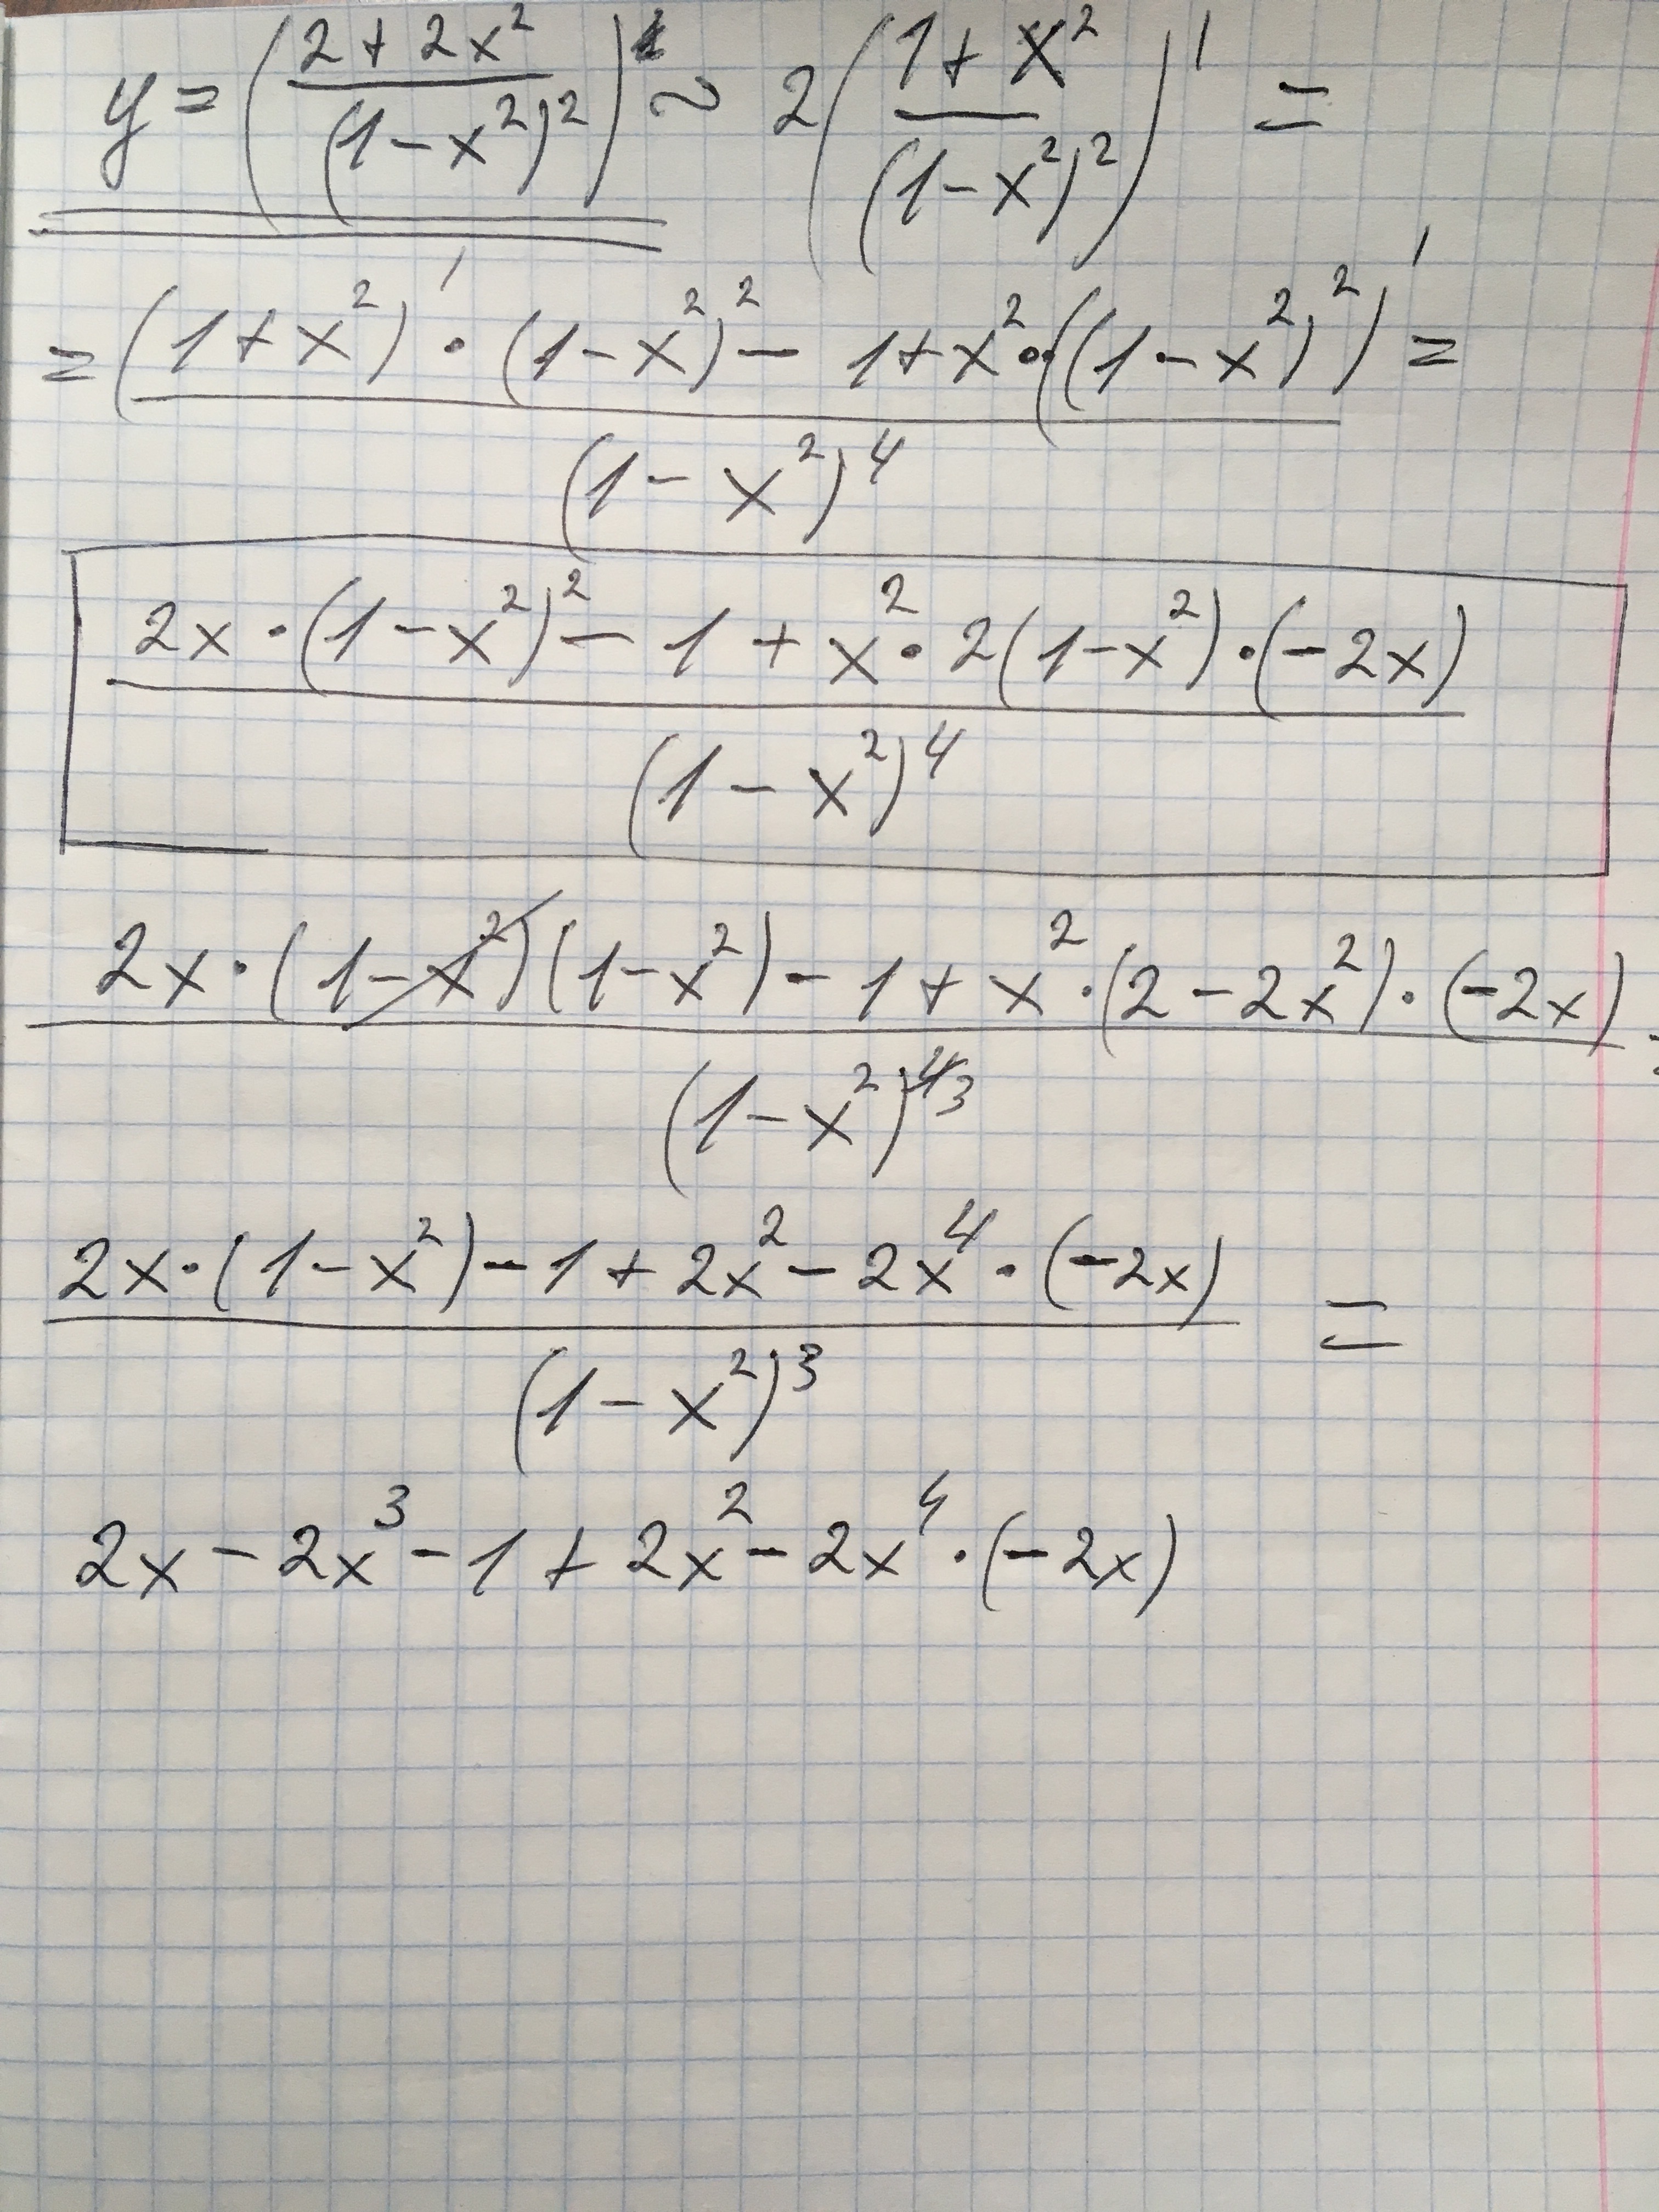 y = ((2 + 2x²)/(1 - x²)²)' ~ 2((1 + x²)/(1 - x²)²)' =
= ((1 + x²)' · (1 - x²)² - 1 + x² · ((1 - x²)²)')/(1 - x²)⁴ =
(2x · (1 - x²)² - 1 + x² · 2(1 - x²) · (-2x))/(1 - x²)⁴
(2x · (1 - x²)(1 - x²) - 1 + x² · (2 - 2x²) · (-2x))/(1 - x²)³
(2x · (1 - x²) - 1 + 2x² - 2x⁴ · (-2x))/(1 - x²)³ =
2x - 2x³ - 1 + 2x² - 2x⁴ · (-2x)